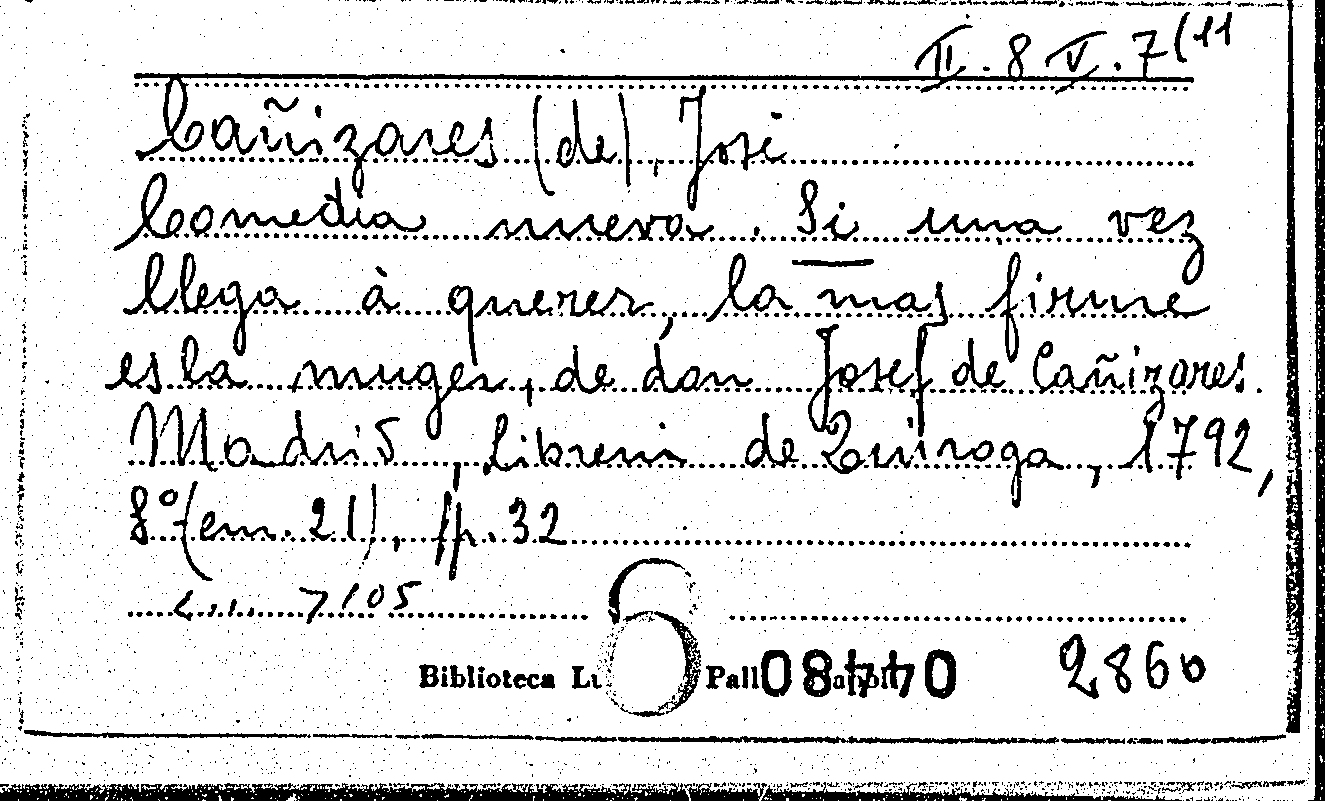 II. 8 V. 7(11
Cañizares (de), José
Comedia nueva. Si una vez
llega à querer, la mas firme
es la muger, de don Josef de Cañizares.
Madrid, Libreria de Quiroga, 1792,
8° (cm. 21), pp. 32
7105
Biblioteca 08440 2860